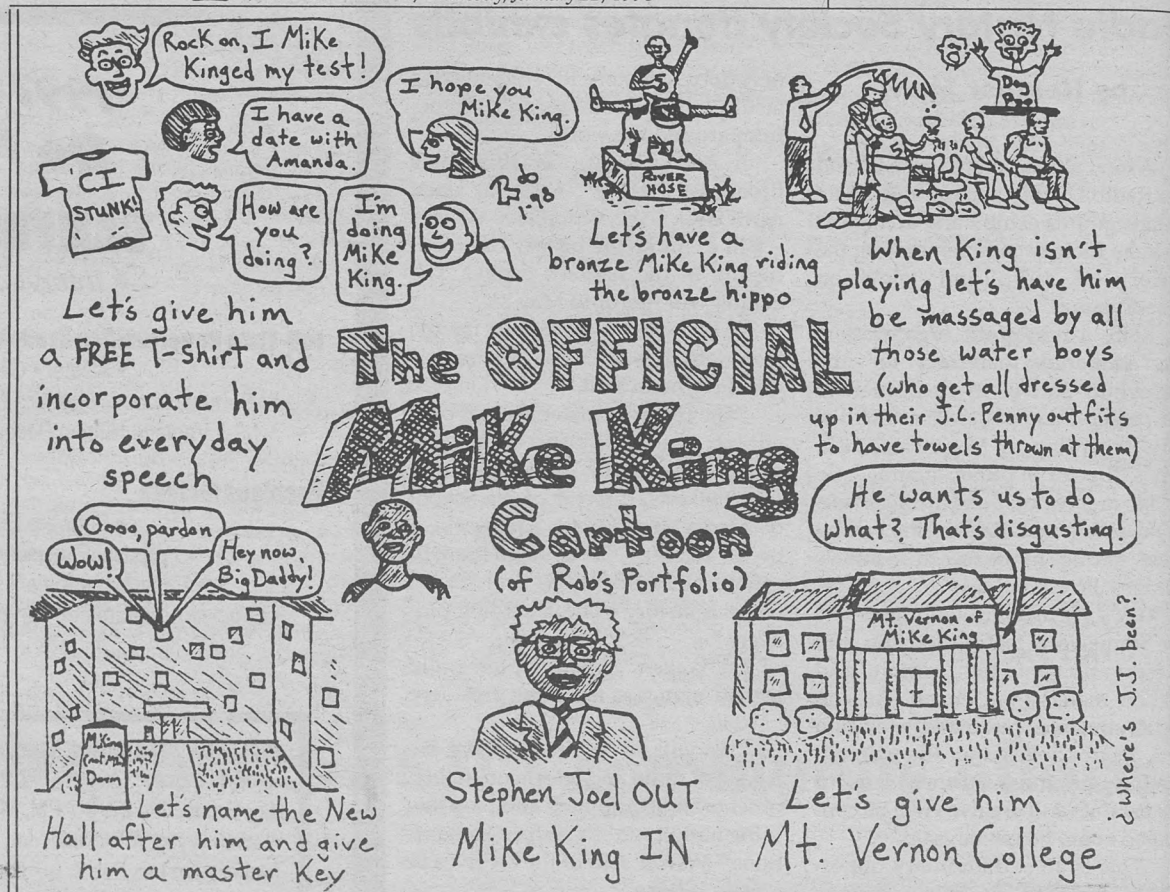 Rock on, I Mike
Kinged my test!
I have a
date with
Amanda.
I hope you
Mike King.
CI
STUNK!
How are
you
doing?
I'm
doing
Mike
King.
1.98
Let's give him
a FREE T-Shirt and
incorporate him
into everyday
speech
5
RIVER
HOSE
Let's have a
bronze Mike King riding
the bronze hippo
When King isn't
playing let's have him
be massaged by all
those water boys
(who get all dressed
up in their J.C. Penny outfits
to have towels thrown at them)
The OFFICIAL
Mike King
Cartoon
(of Rob's Portfolio)
Oooo, pardon
Wow!
Hey now,
Big Daddy!
M. King
Dorm
Let's name the New
Hall after him and give
him a master Key
Stephen Joel OUT
Mike King IN
He wants us to do
what? That's disgusting!
Mt. Vernon of
Mike King
Let's give him
Mt. Vernon College
¿Where's J.J. been?